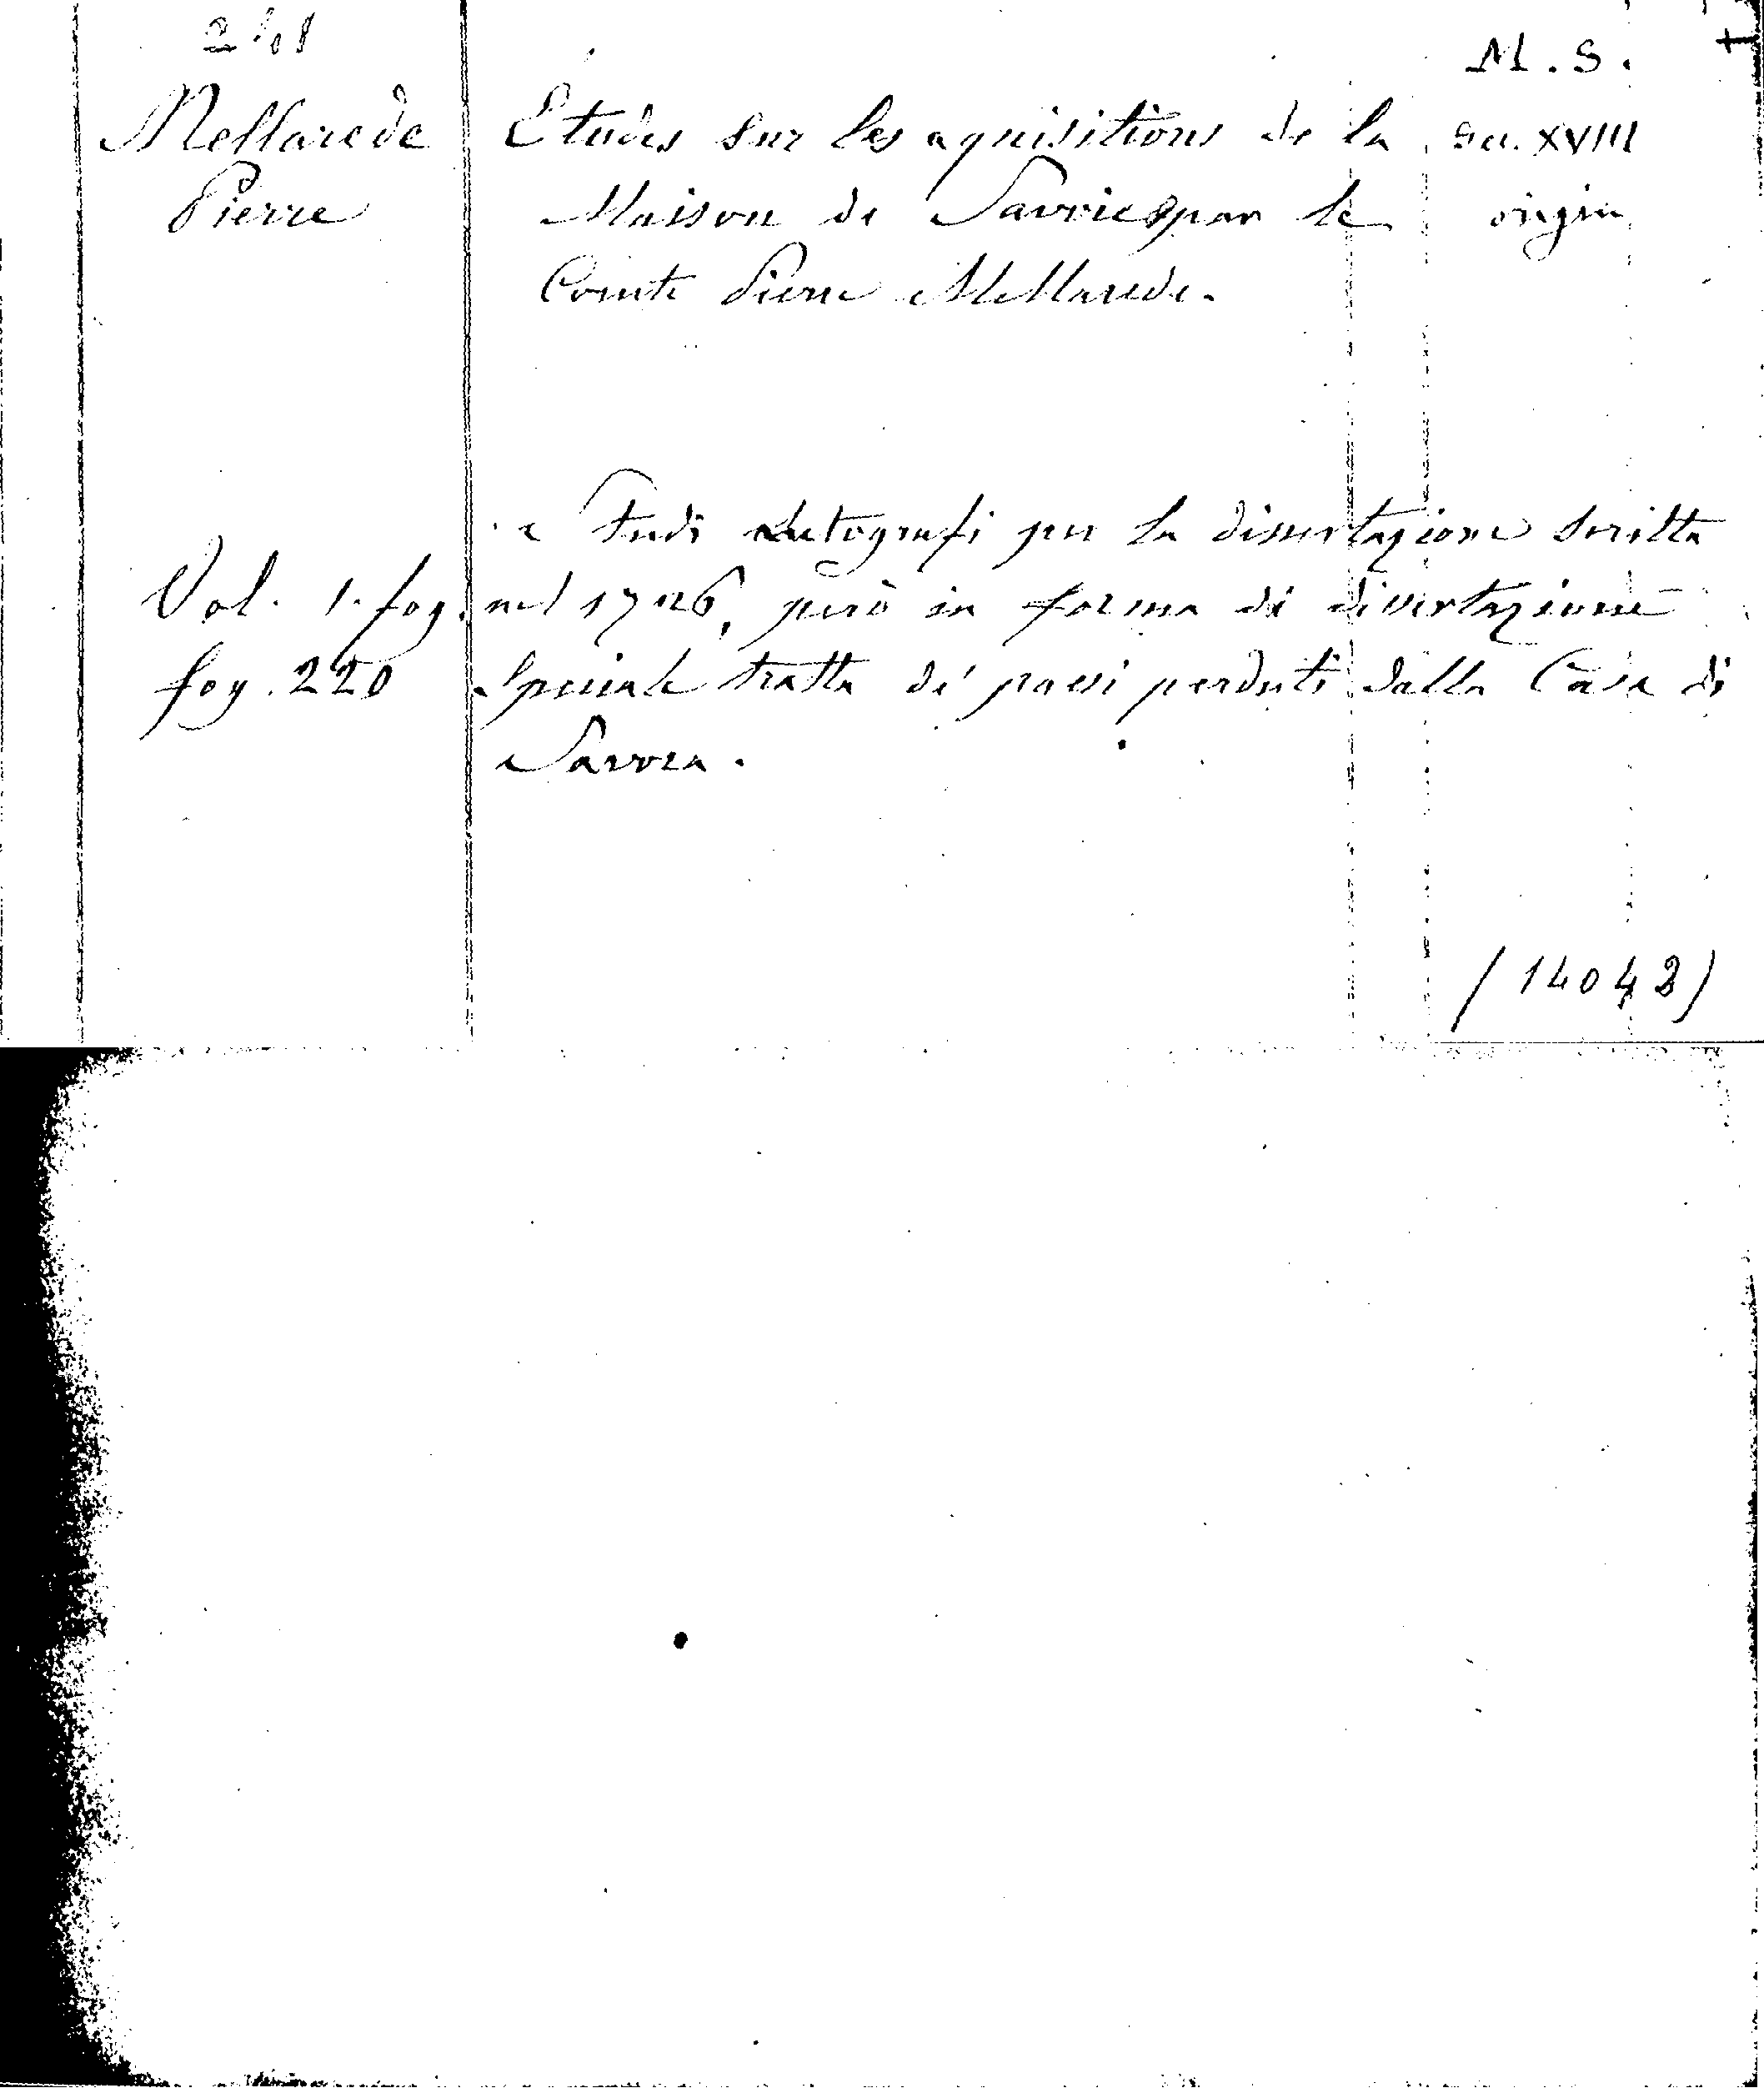 M. S.
Mellarede
Pierre
Etudes sur les aquisitions de la
Maison de Savoie par le
Comte Pierre Mellarede.
sec. XVIII
origin
Vol. 1. fog.
fog. 220
Studi autografi per la dissertazione scritta
nel 1726, però in forma di dissertazione
speciale tratta de' paesi perduti dalla Casa di
Savoia.
(14042)